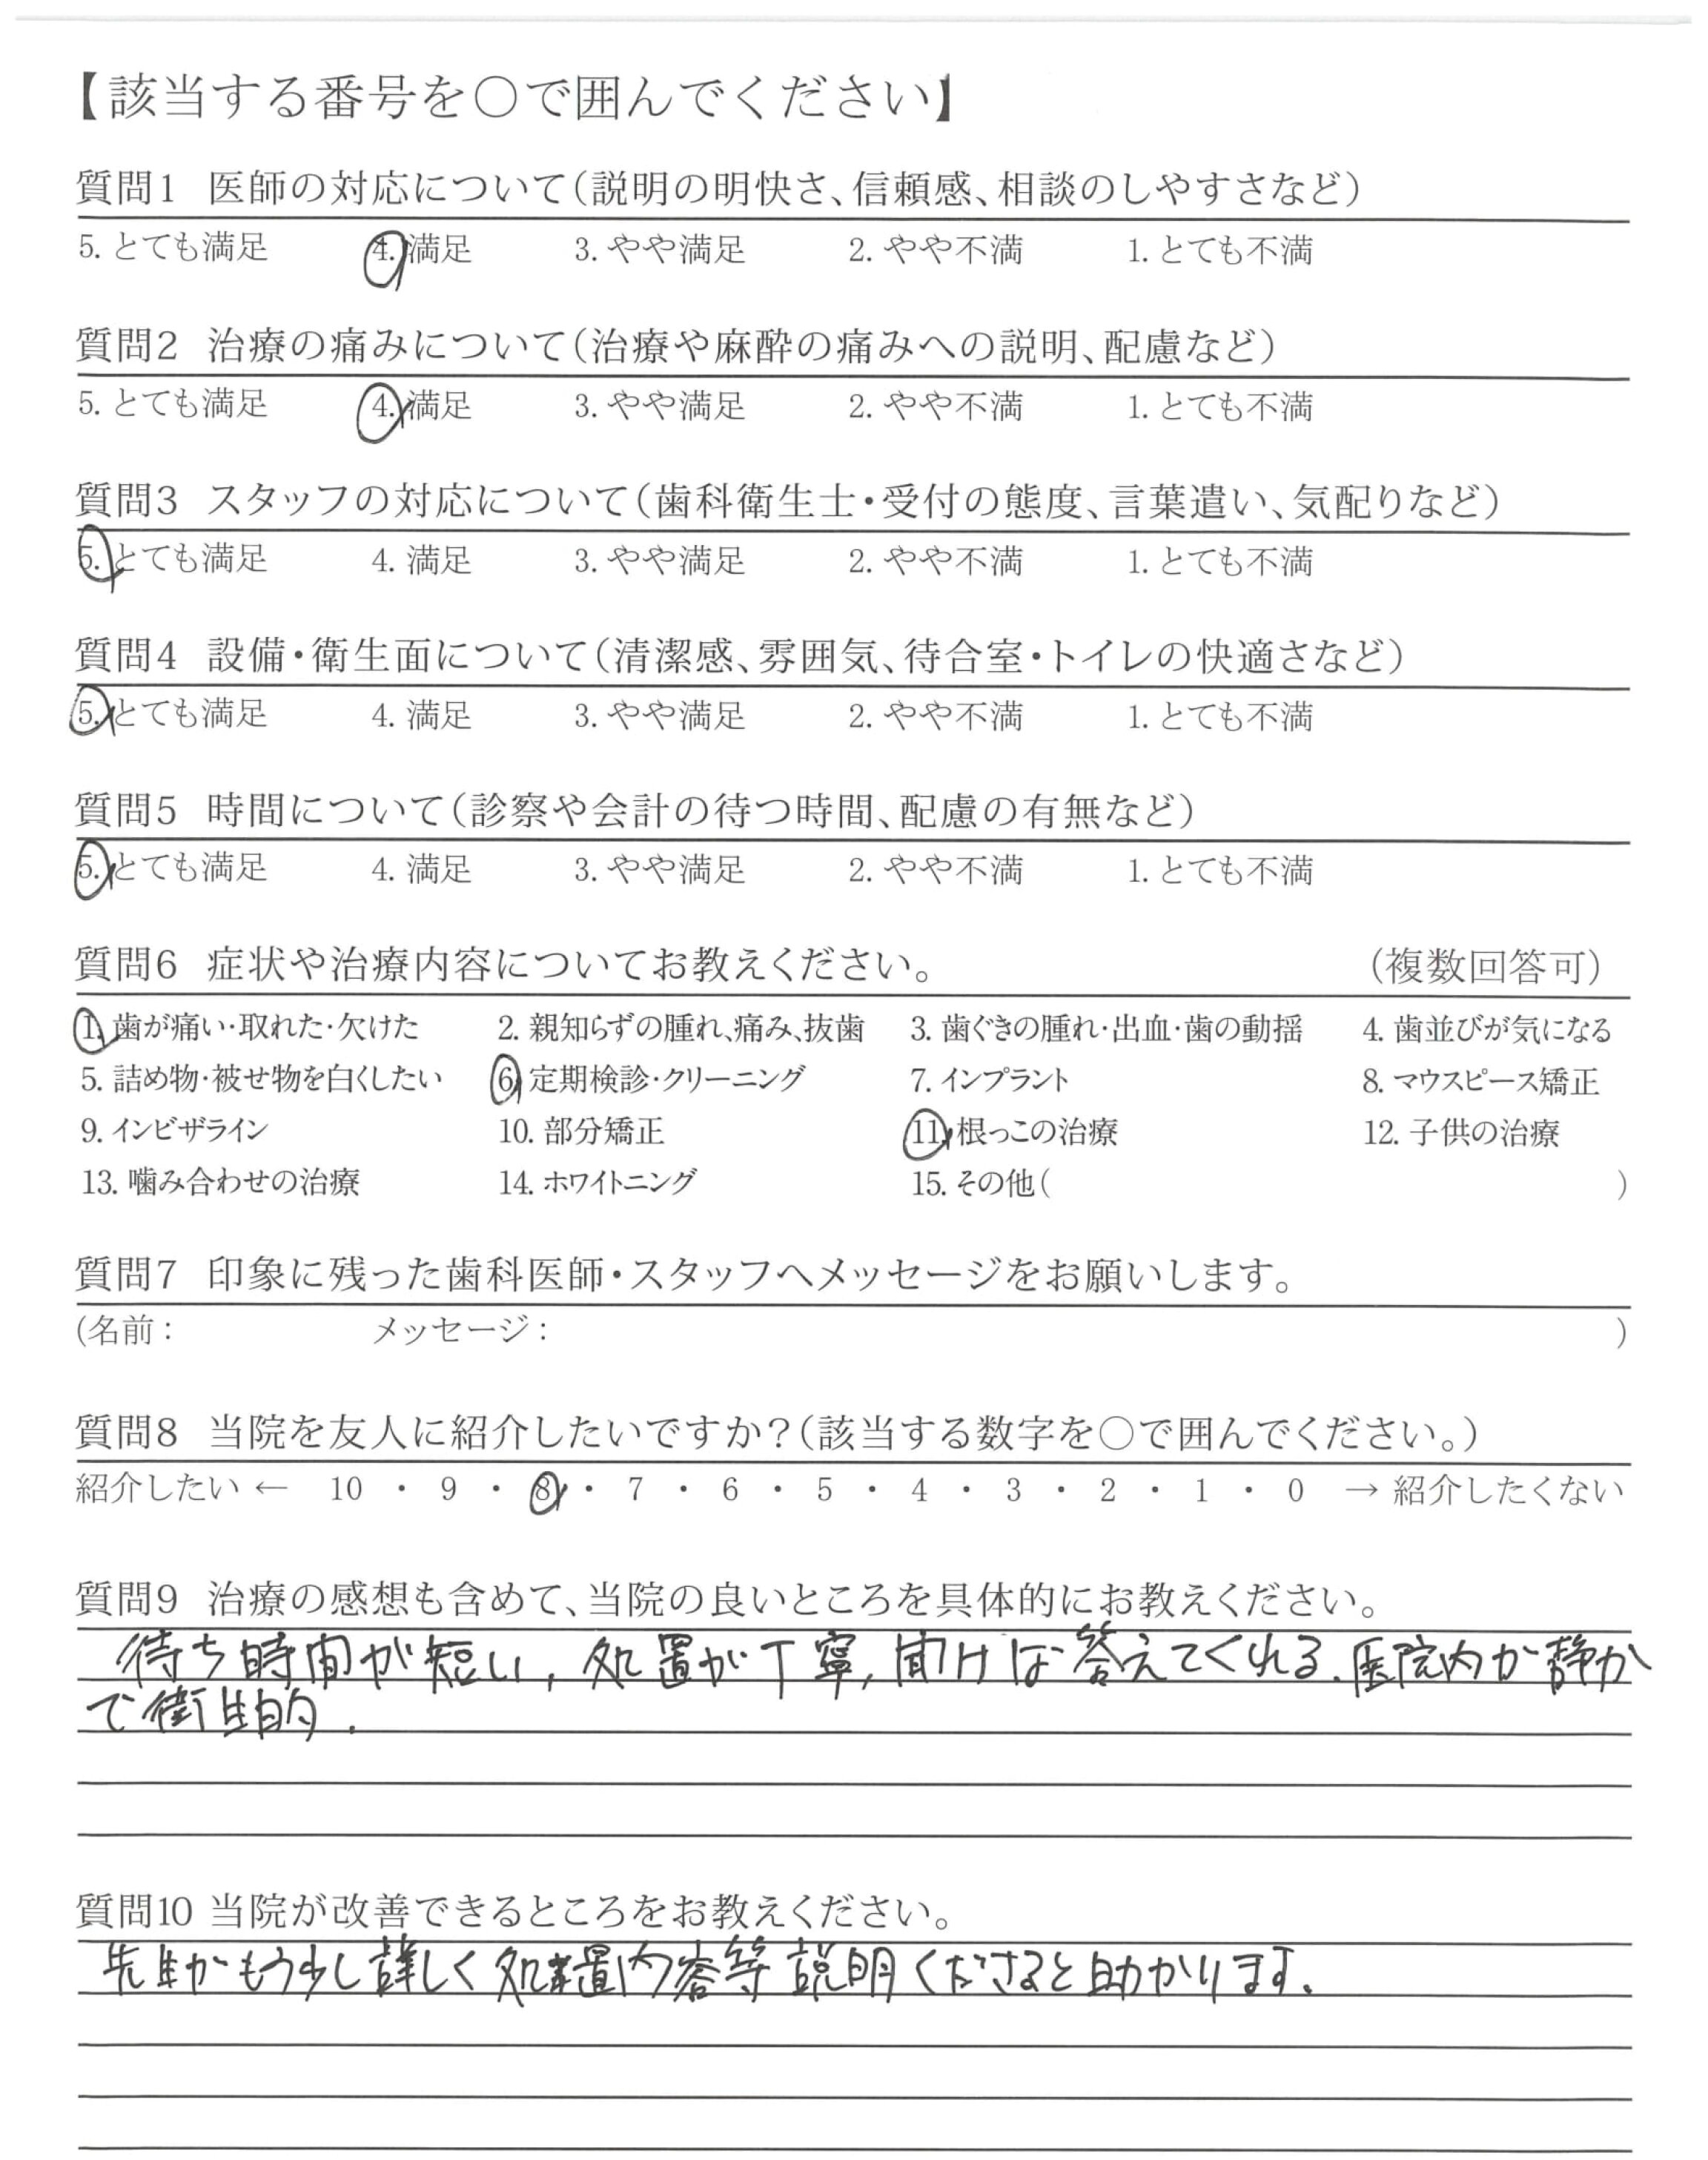 【該当する番号を〇で囲んでください】
質問1 医師の対応について(説明の明快さ、信頼感、相談のしやすさなど)
5. とても満足 4. 満足 3. やや満足 2. やや不満 1. とても不満
質問2 治療の痛みについて(治療や麻酔の痛みへの説明、配慮など)
5. とても満足 4. 満足 3. やや満足 2. やや不満 1. とても不満
質問3 スタッフの対応について(歯科衛生士・受付の態度、言葉遣い、気配りなど)
5. とても満足 4. 満足 3. やや満足 2. やや不満 1. とても不満
質問4 設備・衛生面について(清潔感、雰囲気、待合室・トイレの快適さなど)
5. とても満足 4. 満足 3. やや満足 2. やや不満 1. とても不満
質問5 時間について(診察や会計の待つ時間、配慮の有無など)
5. とても満足 4. 満足 3. やや満足 2. やや不満 1. とても不満
質問6 症状や治療内容についてお教えください。 (複数回答可)
1. 歯が痛い・取れた・欠けた 2. 親知らずの腫れ、痛み、抜歯 3. 歯ぐきの腫れ・出血・歯の動揺 4. 歯並びが気になる
5. 詰め物・被せ物を白くしたい 6. 定期検診・クリーニング 7. インプラント 8. マウスピース矯正
9. インビザライン 10. 部分矯正 11. 根っこの治療 12. 子供の治療
13. 噛み合わせの治療 14. ホワイトニング 15. その他( )
質問7 印象に残った歯科医師・スタッフへメッセージをお願いします。
(名前: メッセージ: )
質問8 当院を友人に紹介したいですか?(該当する数字を〇で囲んでください。)
紹介したい ← 10 ・ 9 ・ 8 ・ 7 ・ 6 ・ 5 ・ 4 ・ 3 ・ 2 ・ 1 ・ 0 → 紹介したくない
質問9 治療の感想も含めて、当院の良いところを具体的にお教えください。
待ち時間が短い, 処置が丁寧, 聞けば答えてくれる. 医院内が静か
で衛生的.
質問10 当院が改善できるところをお教えください。
先生がもう少し詳しく処置内容等説明くださると助かります.